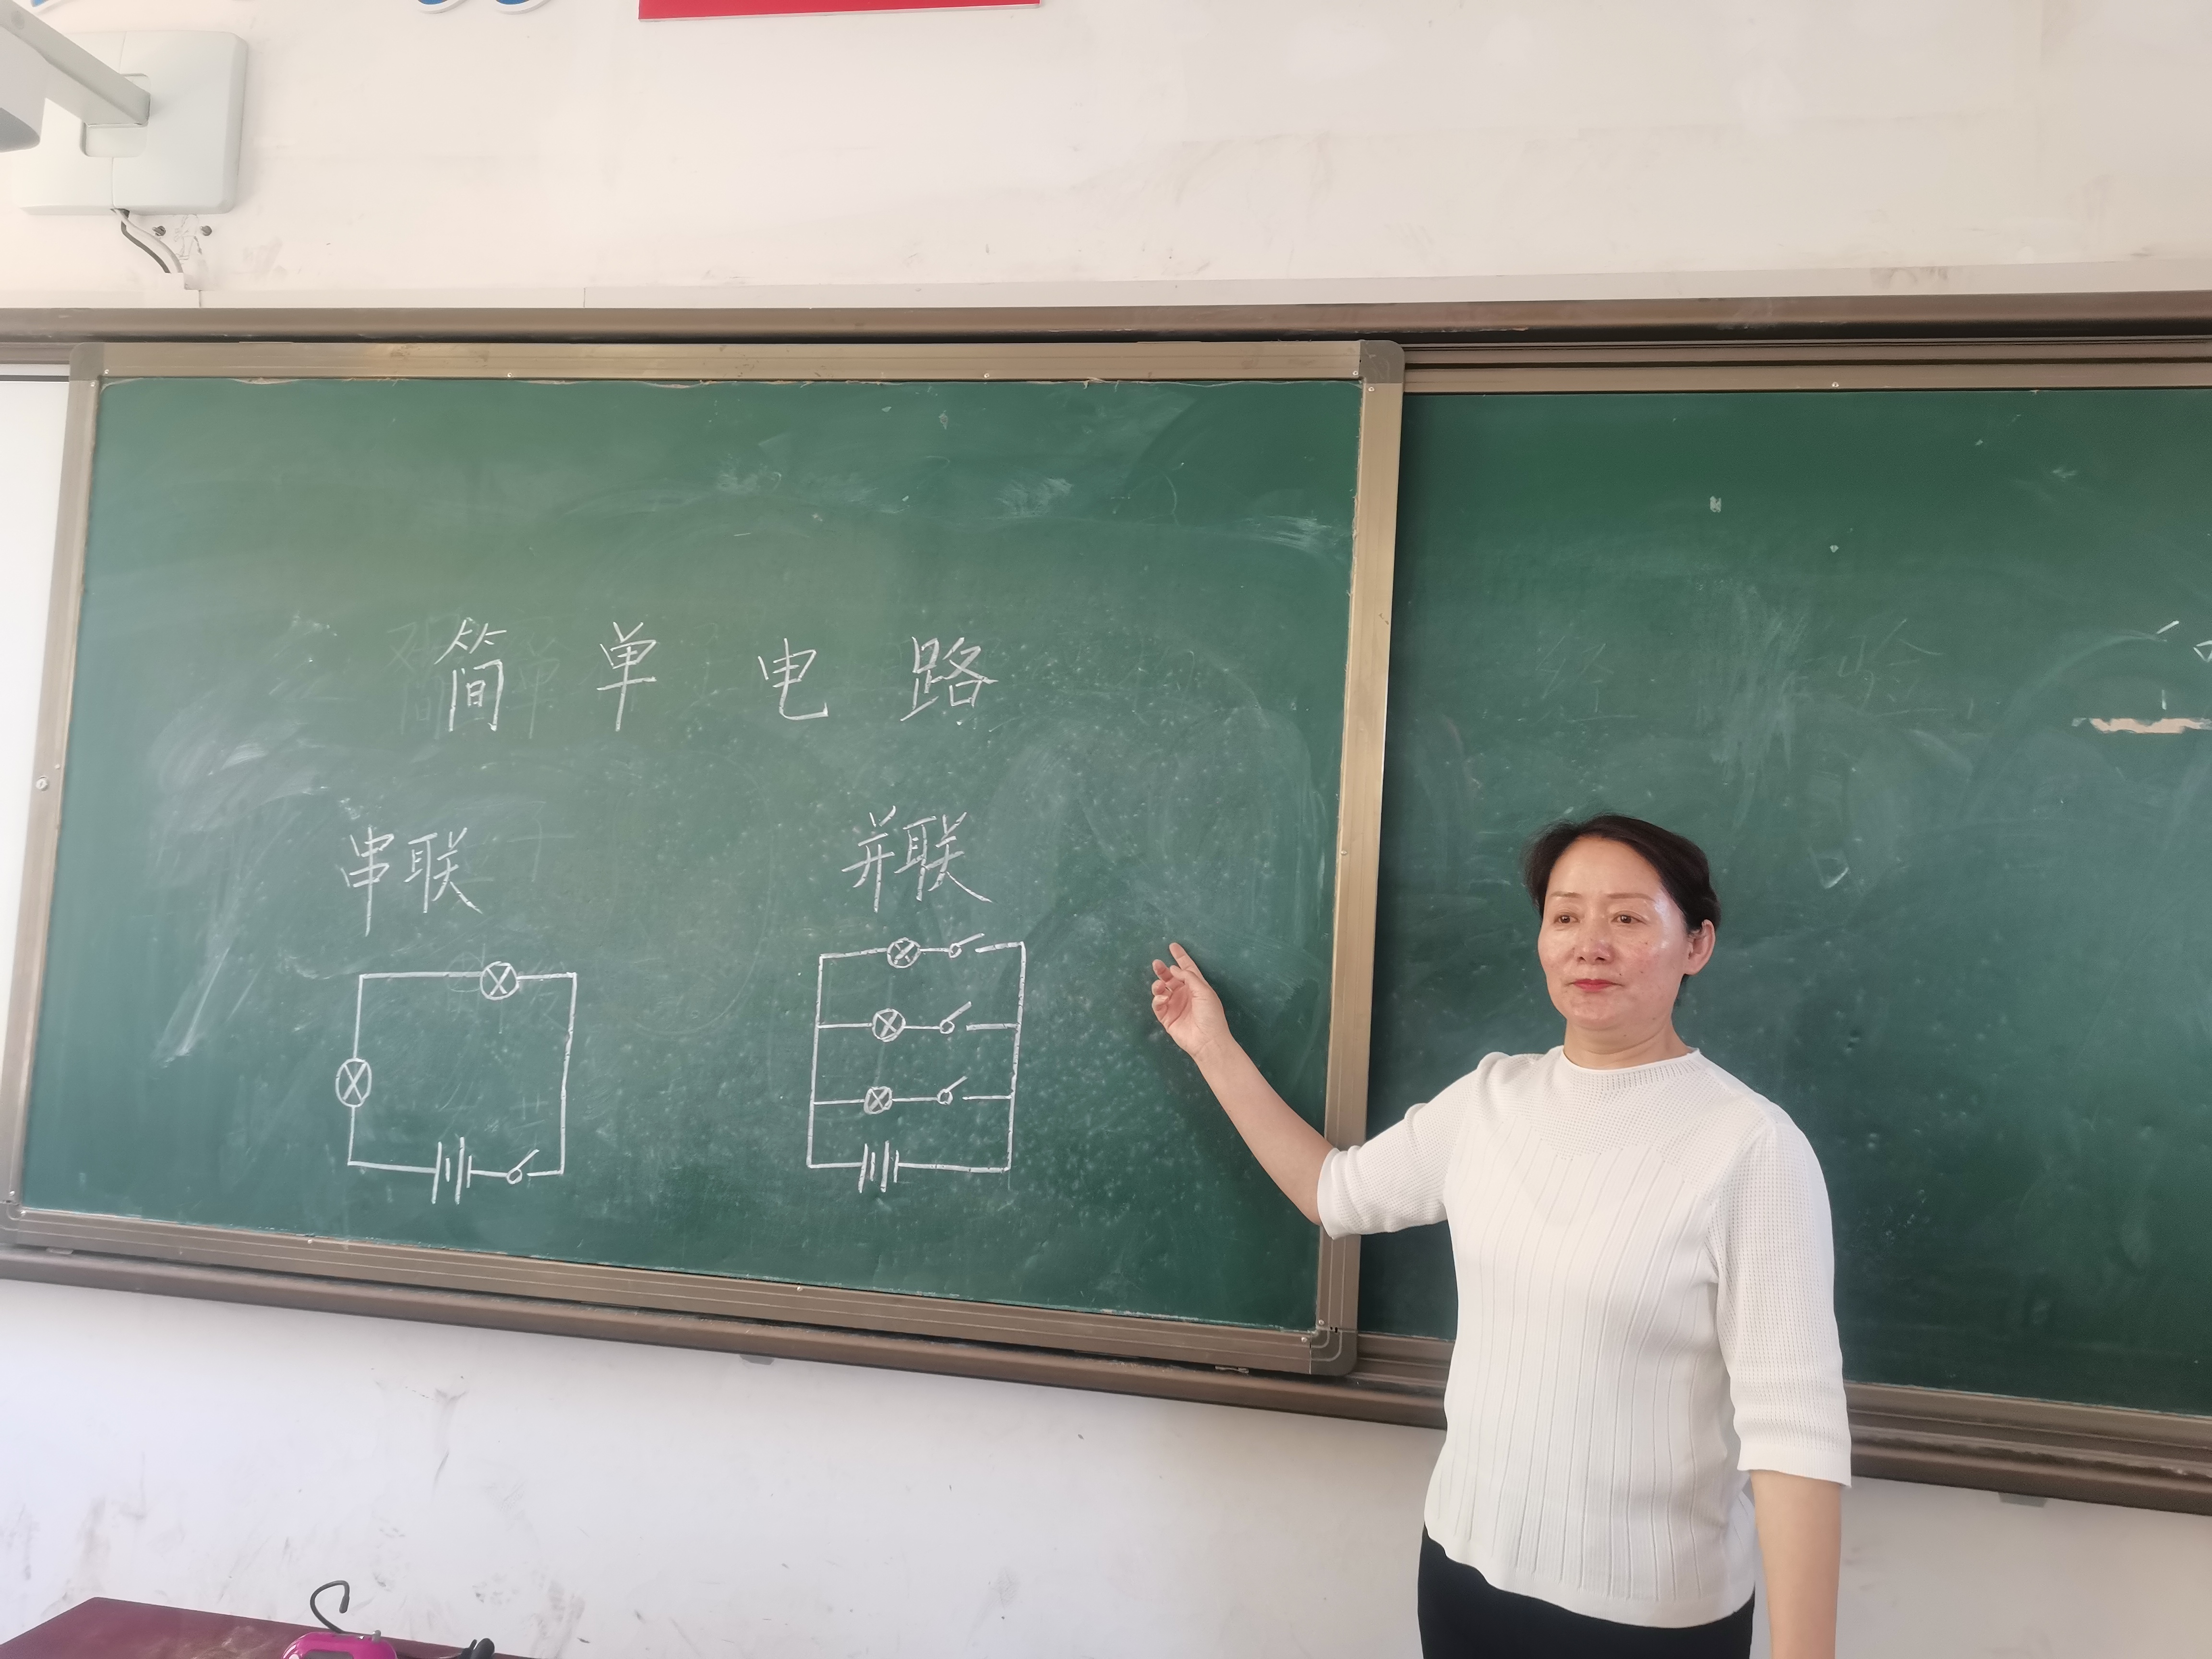 简单电路
串联 并联